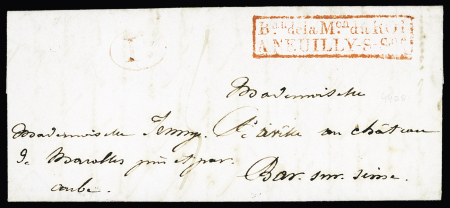 Bau de la Mon du ROI
A NEUILLY-S-
I
Mademoiselle
Mademoiselle Jenny au château
De Marolles près et par
Bar. sur seine.
aube.